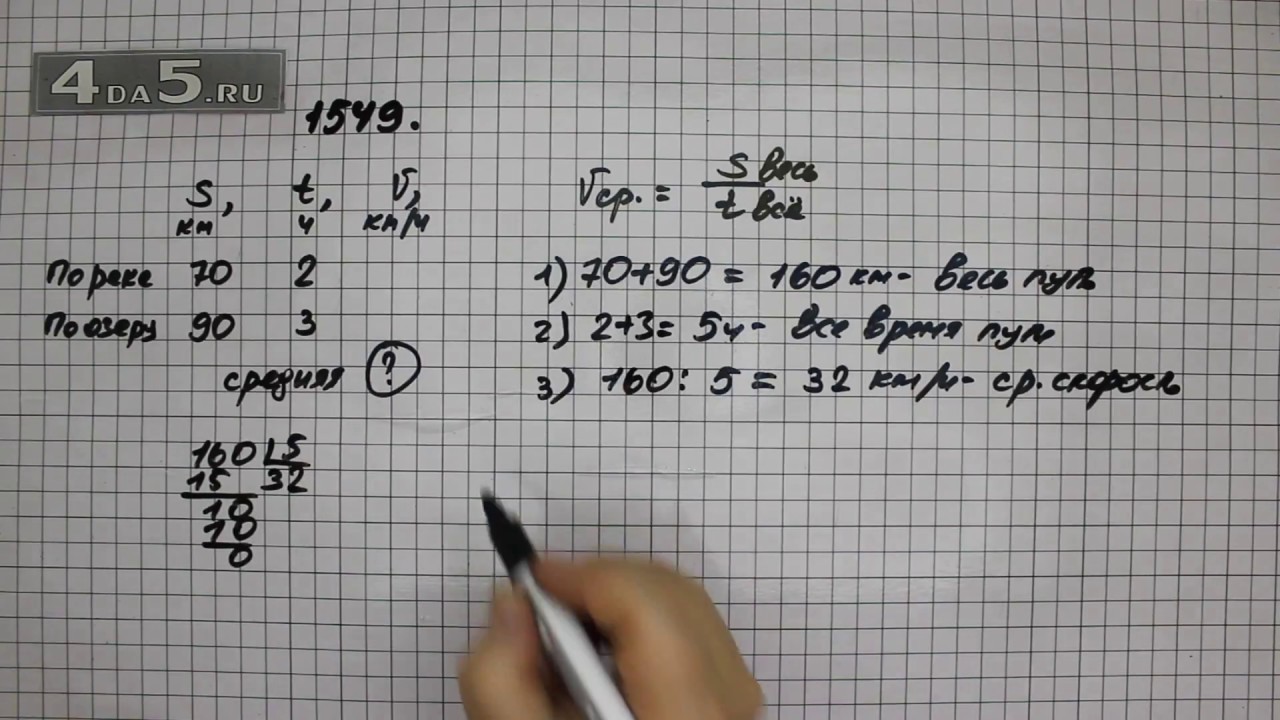 4DA5.RU
1549.
S, t, V,
км ч км/ч
По реке 70 2
По озеру 90 3
средняя ?
160 5
15 32
10
10
0
Vср. = S весь
t всё
1) 70+90 = 160 км - весь путь
2) 2+3= 5ч - все время пути
3) 160 : 5 = 32 км/ч - ср. скорость